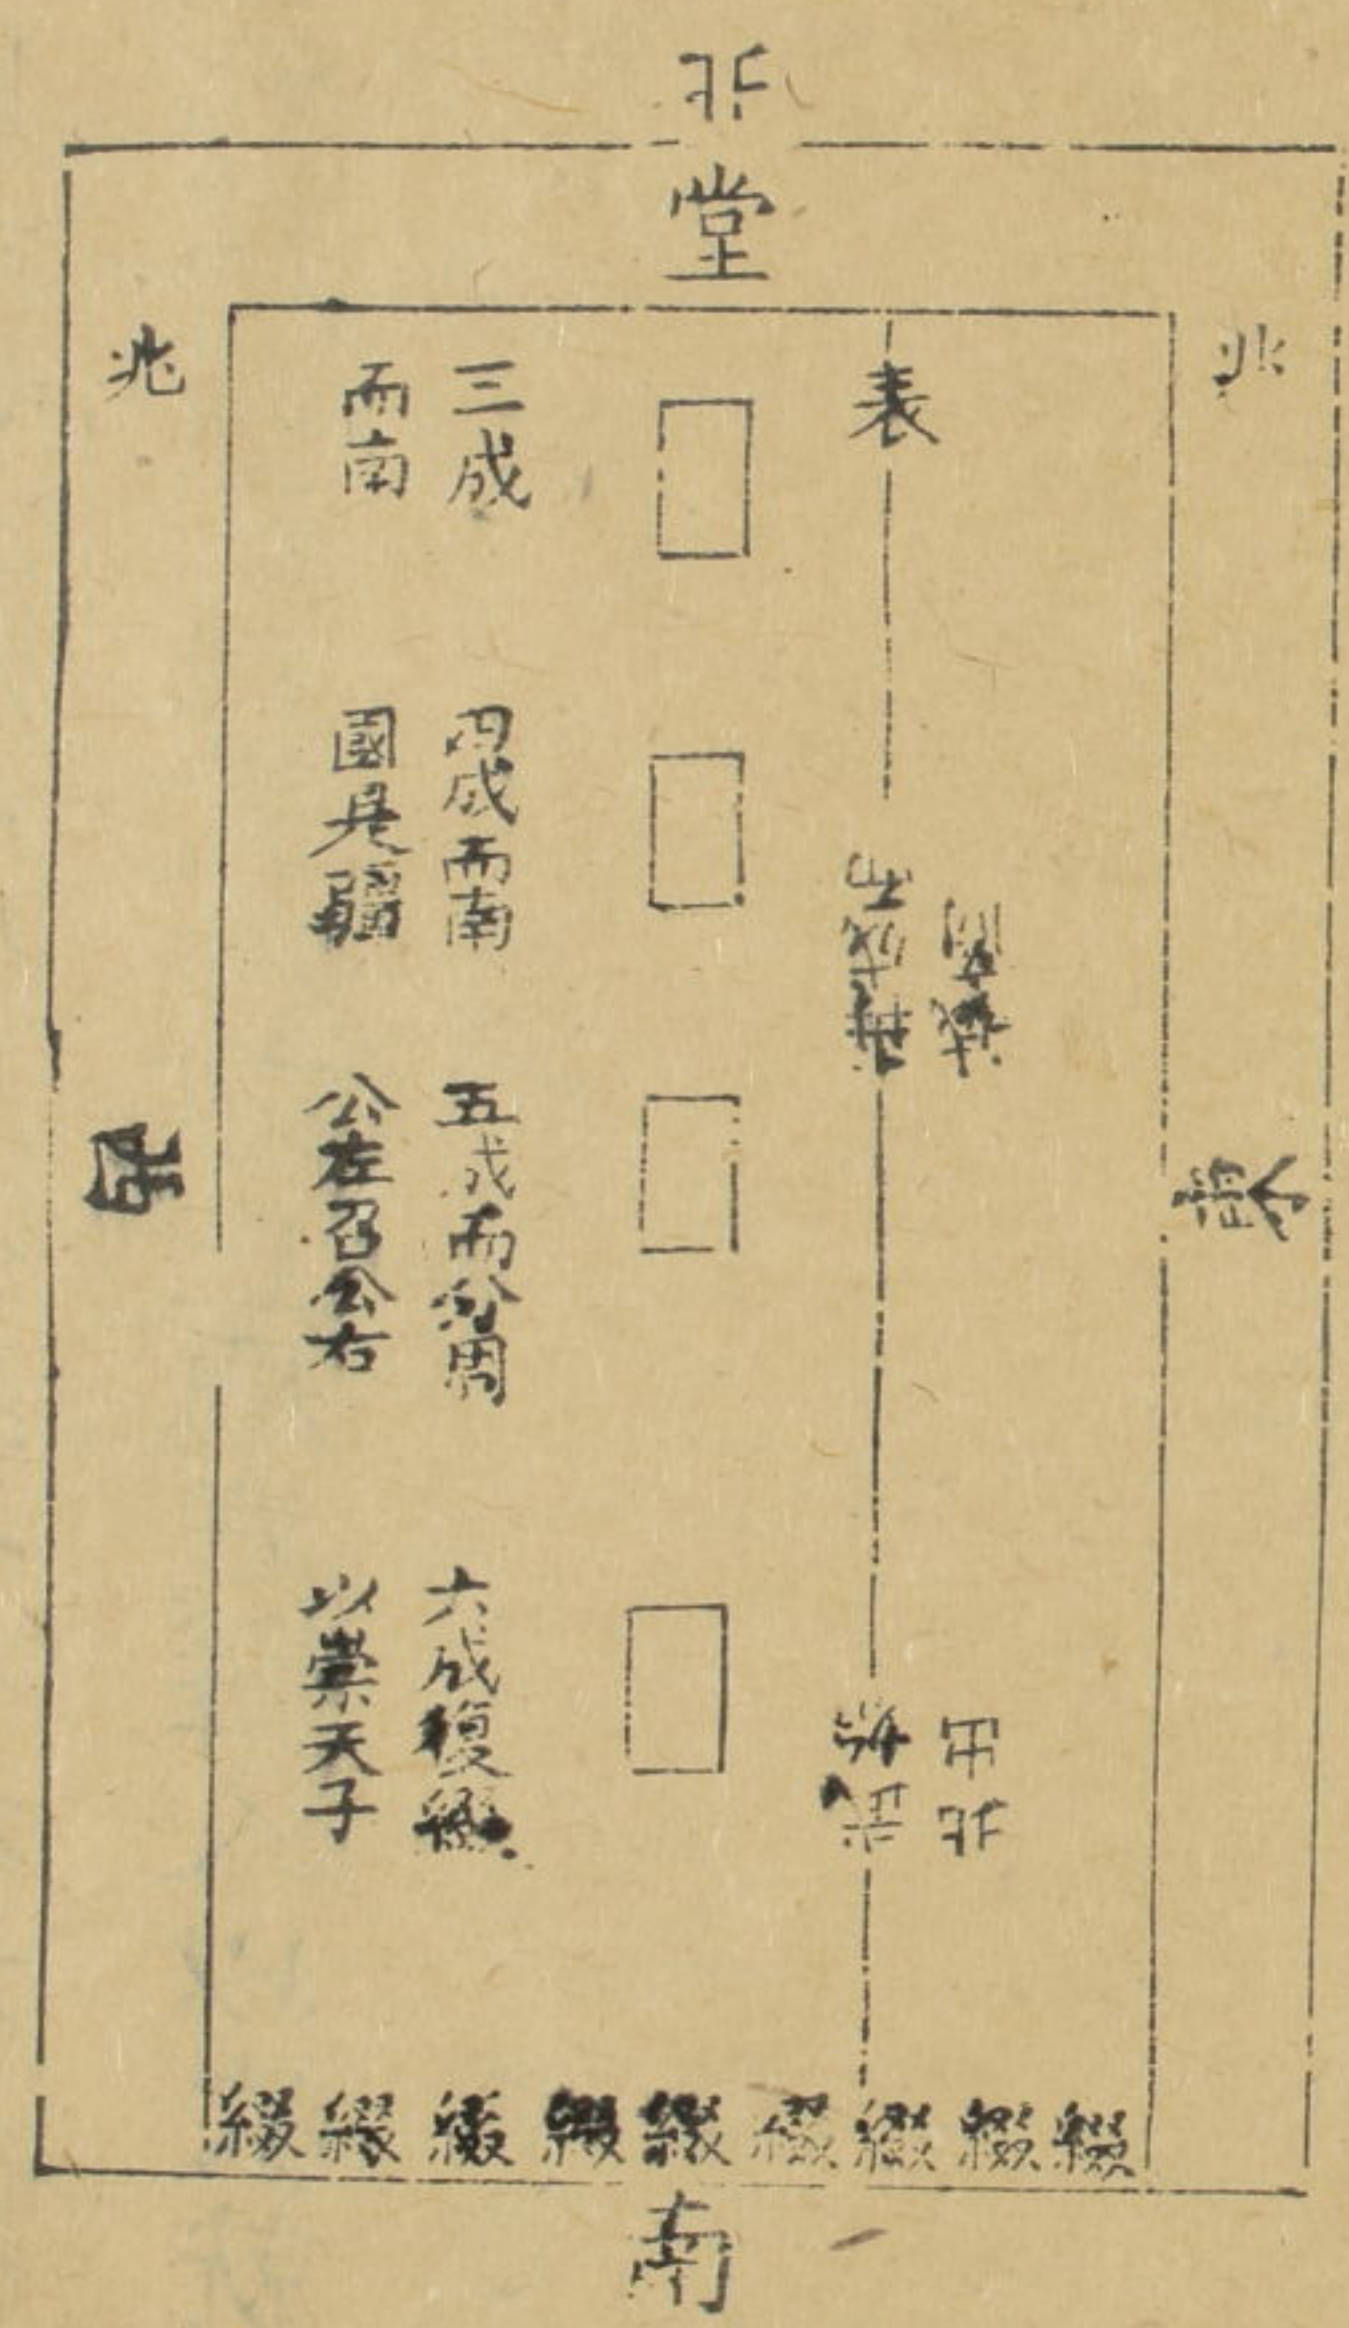 北
堂
兆
兆
表
三成
而南
四成而南
國是疆
五成而分周
公左召公右
六成復綴
以崇天子
再成而
滅商
北出
綴綴綴綴綴綴綴綴綴
南